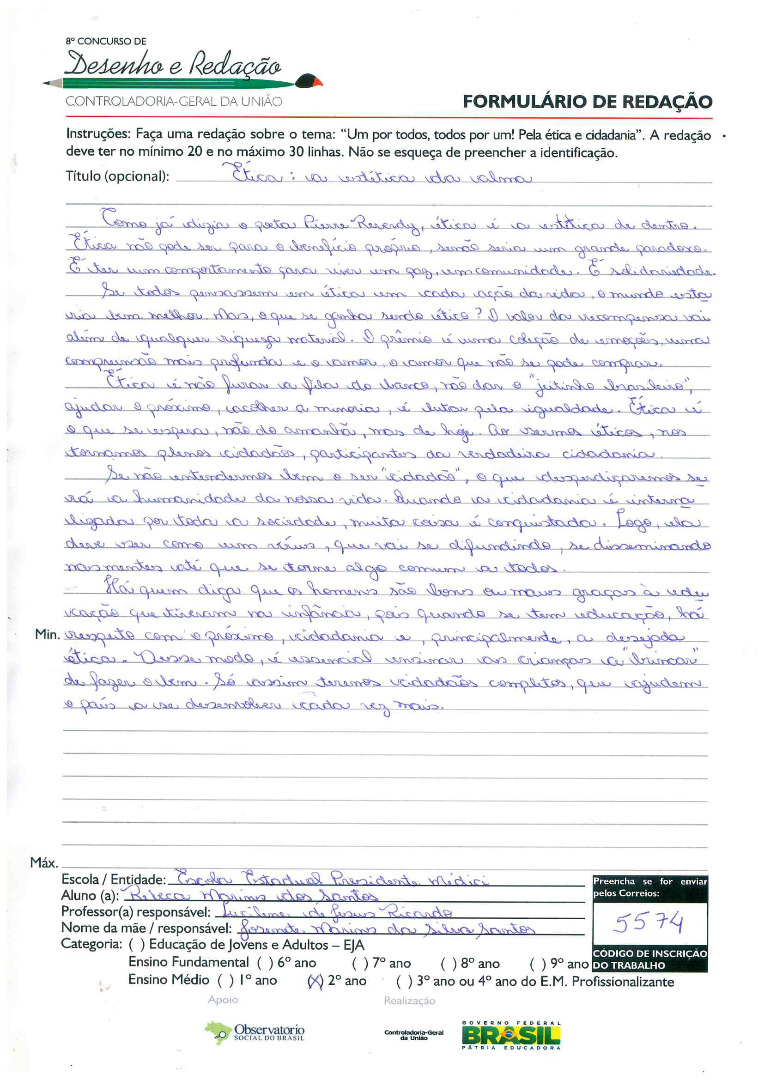 8º CONCURSO DE
Desenho e Redação
CONTROLADORIA-GERAL DA UNIÃO
FORMULÁRIO DE REDAÇÃO
Instruções: Faça uma redação sobre o tema: "Um por todos, todos por um! Pela ética e cidadania". A redação
deve ter no mínimo 20 e no máximo 30 linhas. Não se esqueça de preencher a identificação.
Título (opcional): Ética: a estética da alma
Como já dizia o poeta Pierre Reverdy, ética é a estética de dentro.
Ética não pode ser para o benefício próprio, senão seria um grande paradoxo.
É ter um comportamento para viver em paz, em comunidade. É solidariedade.
Se todos pensassem em ética em cada ação da vida, o mundo esta
ria bem melhor. Mas, o que se ganha sendo ético? O valor da recompensa vai
além de qualquer riqueza material. O prêmio é uma coleção de emoções, uma
compreensão mais profunda e o amor, o amor que não se pode comprar.
Ética é não furar a fila do banco, não dar o "jeitinho brasileiro",
ajudar o próximo, acolher a minoria, é lutar pela igualdade. Ética é
o que se espera, não do amanhã, mas de hoje. Ao sermos éticos, nos
tornamos plenos cidadãos, participantes da verdadeira cidadania.
Se não entendermos bem o ser "cidadão", o que desperdiçaremos se
rá a humanidade da nossa vida. Quando a cidadania é interna
lizada por toda a sociedade, muita coisa é conquistada. Logo, ela
deve ser como um vírus, que vai se difundindo, se disseminando
nas mentes até que se torne algo comum a todos.
Há quem diga que os homens são bons ou maus graças à edu
cação que tiveram na infância, pois quando se tem educação, há
Min. respeito com o próximo, cidadania e, principalmente, a desejada
ética. Desse modo, é essencial ensinar as crianças a "brincar"
de fazer o bem. Só assim teremos cidadãos completos, que ajudem
o país a se desenvolver cada vez mais.
Máx.
Escola / Entidade: Escola Estadual Presidente Médici
Aluno (a): Rebeca Marino dos Santos
Professor(a) responsável: Lucilene de Jesus Ricardo
Nome da mãe / responsável: Josenete Marino da Silva Santos
Preencha se for enviar
pelos Correios:
5574
CÓDIGO DE INSCRIÇÃO
DO TRABALHO
Categoria: ( ) Educação de Jovens e Adultos – EJA
Ensino Fundamental ( ) 6º ano ( ) 7º ano ( ) 8º ano ( ) 9º ano
Ensino Médio ( ) 1º ano (X) 2º ano ( ) 3º ano ou 4º ano do E.M. Profissionalizante
Apoio Realização
Observatorio
SOCIAL DO BRASIL
Controladoria-Geral
da União
GOVERNO FEDERAL
BRASIL
PÁTRIA EDUCADORA